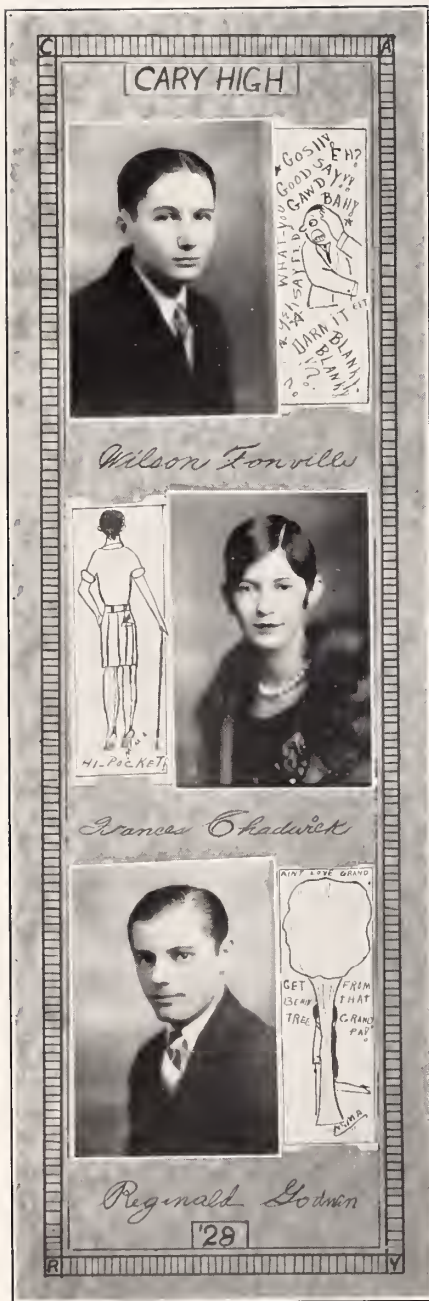 C A
CARY HIGH
GOSH EH?
GOOD SAY
GAWD BAH!
WHAT-YOU
SAY
DARN IT
BLANK
BLANK
Wilson Fonville
HI-POCKET
Frances Chadwick
AINT LOVE GRAND
GET FROM
BEHIN THAT
TREE GRAND
PAP
Reginald Godwin
'28
R Y